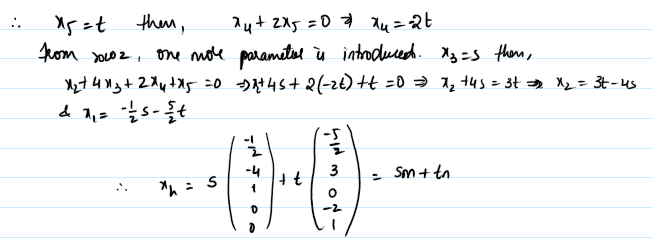 ∴ x₅ = t then, x₄ + 2x₅ = 0 ⇒ x₄ = -2t
From row 2, one more parameter is introduced. x₃ = s then,
x₂ + 4x₃ + 2x₄ + x₅ = 0 ⇒ x₂ + 4s + 2(-2t) + t = 0 ⇒ x₂ + 4s = 3t ⇒ x₂ = 3t - 4s
& x₁ = -1/2 s - 5/2 t
∴ xₕ = s (-1/2, -4, 1, 0, 0) + t (-5/2, 3, 0, -2, 1) = sm + tn